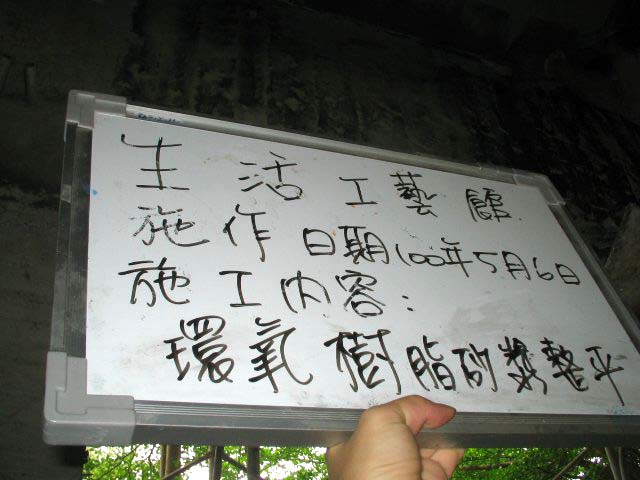 生活工藝館
施作日期100年5月6日
施工內容:
環氧樹脂砂漿整平